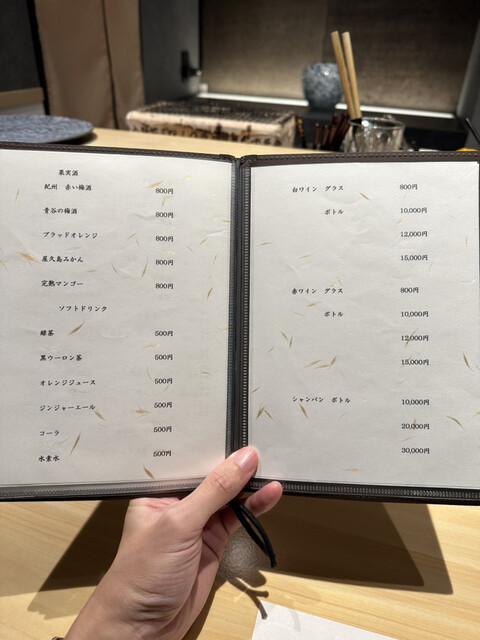 果実酒
紀州 赤い梅酒 800円
青谷の梅酒 800円
ブラッドオレンジ 800円
屋久島みかん 800円
完熟マンゴー 800円
ソフトドリンク
緑茶 500円
黒ウーロン茶 500円
オレンジジュース 500円
ジンジャーエール 500円
コーラ 500円
水素水 500円
白ワイン グラス 800円
ボトル 10,000円
12,000円
15,000円
赤ワイン グラス 800円
ボトル 10,000円
12,000円
15,000円
シャンパン ボトル 10,000円
20,000円
30,000円